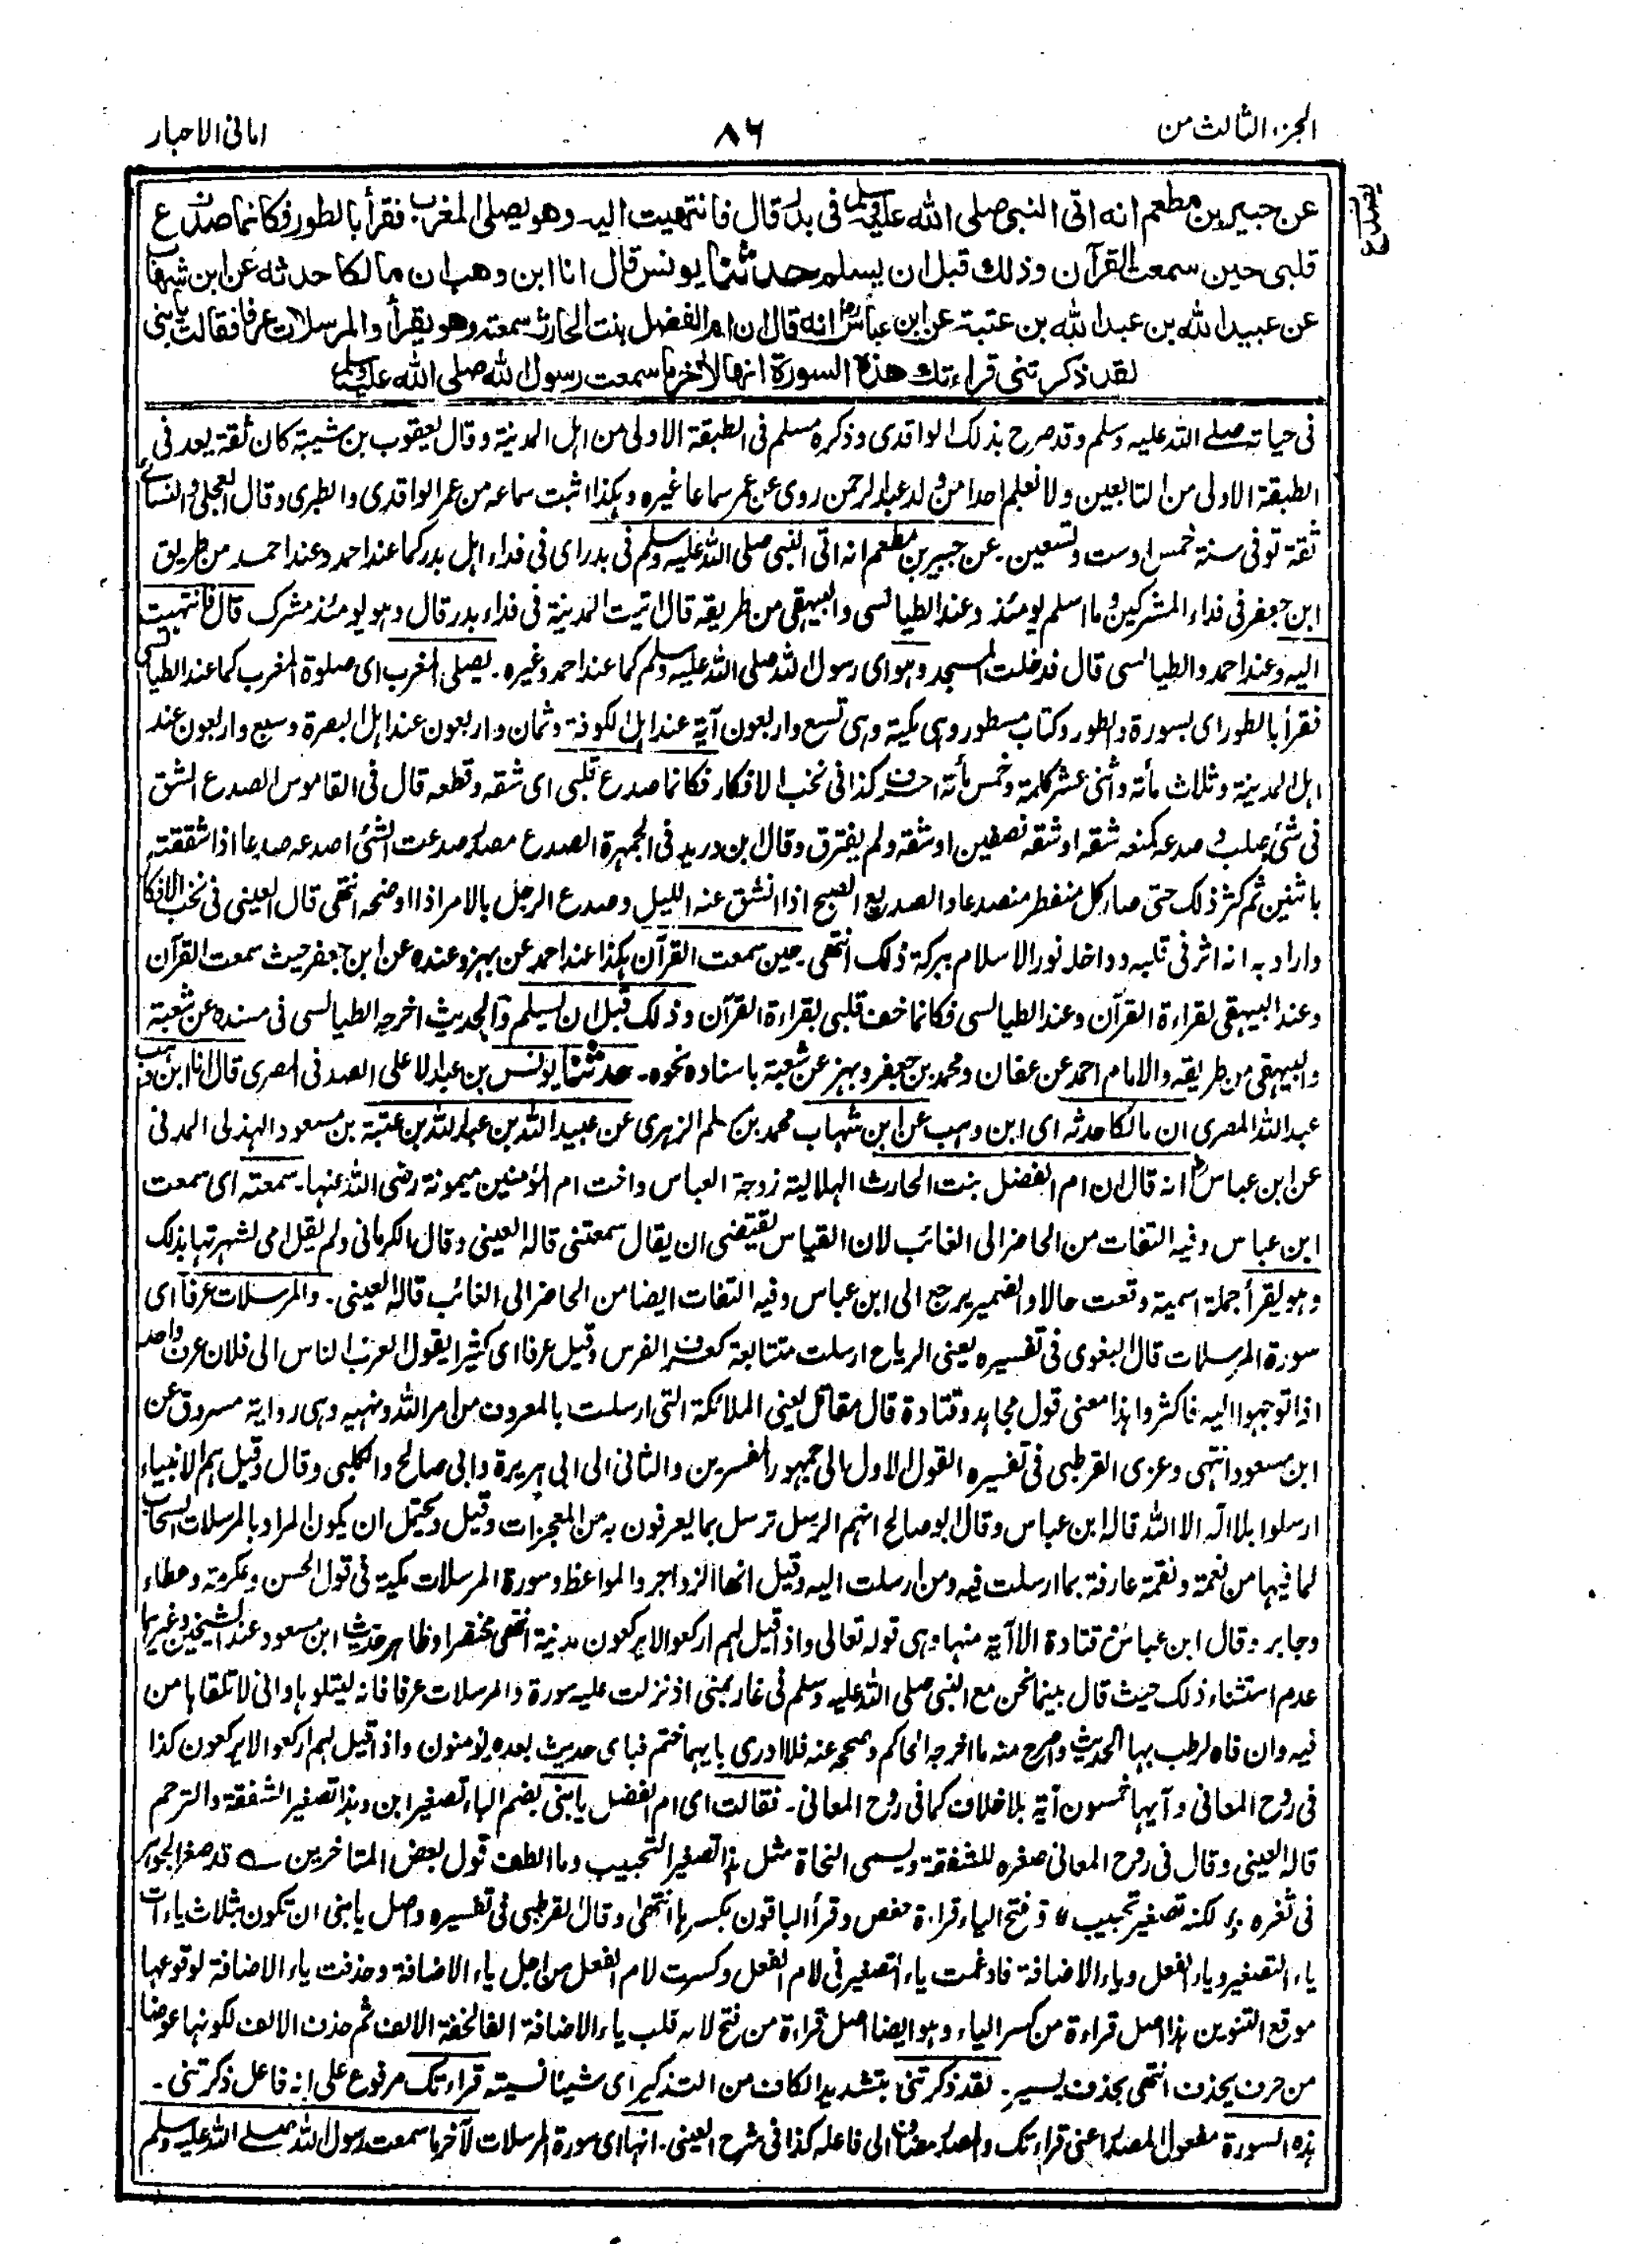 الجزء الثالث من
٨٦
امانی الاحبار
عن جبير بن مطعم انه اتی النبی صلی الله علیه وسلم فی بدر قال فانتهيت اليه وهو يصلی المغرب فقرأ بالطور فكانما صدع
قلبی حين سمعت القرآن وذلك قبل ان يسلم حدثنا يونس قال انا ابن وهب ان مالكا حدثه عن ابن شهاب
عن عبيد الله بن عبد الله بن عتبة عن ابن عباس انه قال ان ام الفضل بنت الحارث سمعته وهو يقرأ والمرسلات عرفا فقالت يا بنی
لقد ذكرتنی قراءتك هذه السورة انها لآخر ما سمعت رسول الله صلی الله علیه وسلم
فی حياته صلے الله عليه وسلم وقد صرح بذلك الواقدی وذكره مسلم فی الطبقة الاولی من اهل المدينة وقال يعقوب بن شيبة كان ثقة يعد فی
الطبقة الاولی من التابعين ولا نعلم احدا من ولد عبد الرحمن روی عن عمر سماعا غيره وهكذا اثبت سماعه من عمر الواقدی والطبری وقال العجلی والنسائی
ثقة توفی سنة خمس او ست وتسعين ۔ عن جبير بن مطعم انه اتی النبی صلی الله عليه وسلم فی بدر ای فی فداء اهل بدر كما عند احمد وعند احمد من طريق
ابن جعفر فی فداء المشركين وما اسلم يومئذ وعند الطيالسی والبيهقی من طريقه قال اتيت المدينة فی فداء بدر قال وهو يومئذ مشرك قال فانتهيت
اليه وعند احمد والطيالسی قال فدخلت المسجد وهو ای رسول الله صلی الله عليه وسلم كما عند احمد وغيره ۔ يصلی المغرب ای صلوة المغرب كما عند الطيالسی
فقرأ بالطور ای بسورة والطور وكتاب مسطور وهی مكية وهی تسع واربعون آية عند اهل الكوفة وثمان واربعون عند اهل البصرة وسبع واربعون عند
اهل المدينة وثلاث مأئة واثنی عشر كلمة وخمس مأئة احرف كذا فی نخب الافكار فكانما صدع قلبی ای شقه وقطعه قال فی القاموس الصدع الشق
فی شئ صلب وصدعه كمنعه شقه او شقه نصفين او شقه ولم يفترق وقال ابن دريد فی الجمهرة الصدع مصدر صدعت الشئ اصدعه صدعا اذا شققته
باثنين ثم كثر ذلك حتی صار كل منفطر منصدعا والصديع الصبح اذا انشق عنه الليل وصدع الرجل بالامر اذا اوضحه انتهی قال العينی فی نخب الافكار
واراد به انه اثر فی قلبه وداخل نور الاسلام ببركة ذلك انتهی ۔ حين سمعت القرآن هكذا عند احمد عن بهز وعنده عن ابن جعفر حيث سمعت القرآن
وعند البيهقی لقراءة القرآن وعند الطيالسی فكانما خف قلبی لقراءة القرآن وذلك قبل ان يسلم والحديث اخرجه الطيالسی فی مسنده عن شعبة
والبيهقی من طريقه والامام احمد عن عفان ومحمد بن جعفر وبهز عن شعبة باسناده نحوه ۔ حدثنا يونس بن عبد الاعلی الصدفی المصری قال انا ابن وهب
عبد الله المصری ان مالكا حدثه ای ابن وهب عن ابن شهاب محمد بن مسلم الزهری عن عبيد الله بن عبد الله بن عتبة بن مسعود الهذلی المدنی
عن ابن عباس انه قال ان ام الفضل بنت الحارث الهلالية زوجة العباس واخت ام المؤمنين ميمونة رضی الله عنها ۔ سمعته ای سمعت
ابن عباس وفيه التفات من الحاضر الی الغائب لان القياس يقتضی ان يقال سمعتنی قاله العينی وقال الكرمانی ولم يقل امی لشهرتها بذلك
وهو يقرأ جملة اسمية وقعت حالا والضمير يرجع الی ابن عباس وفيه التفات ايضا من الحاضر الی الغائب قاله العينی ۔ والمرسلات عرفا ای
سورة المرسلات قال البغوی فی تفسيره يعنی الرياح ارسلت متتابعة كعرف الفرس وقيل عرفا ای كثيرا يقول العرب الناس الی فلان عرف واحد
اذا توجهوا اليه فاكثروا هذا معنی قول مجاهد وقتادة قال مقاتل يعنی الملائكة التی ارسلت بالمعروف من امر الله ونهيه وهی رواية مسروق عن
ابن مسعود انتهی وعزی القرطبی فی تفسيره القول الاول الی جمهور المفسرين والثانی الی ابی هريرة وابی صالح والكلبی وقال وقيل هم الانبياء
ارسلوا بلا اله الا الله قاله ابن عباس وقال ابو صالح انهم الرسل ترسل بما يعرفون به من المعجزات وقيل ويحتمل ان يكون المراد بالمرسلات السحاب
لما فيها من نعمة ونقمة عارفة بما ارسلت فيه ومن ارسلت اليه وقيل انها الزواجر والمواعظ وسورة المرسلات مكية فی قول الحسن وعكرمة وعطاء
وجابر وقال ابن عباس وقتادة الا آية منها وهی قوله تعالی واذا قيل لهم اركعوا لا يركعون مدنية انتهی مختصرا وظاهر حديث ابن مسعود عند الشيخين وغيرهما
عدم استثناء ذلك حيث قال بينما نحن مع النبی صلی الله عليه وسلم فی غار بمنی اذ نزلت عليه سورة والمرسلات عرفا فانه ليتلوها وانی لاتلقاها من
فيه وان فاه لرطب بها الحديث واصرح منه ما اخرجه الحاكم وصححه عنه فلا ادری بايهما ختم فبای حديث بعده يؤمنون واذا قيل لهم اركعوا لا يركعون كذا
فی روح المعانی وآيها خمسون آية بلا خلاف كما فی روح المعانی ۔ فقالت ای ام الفضل يا بنی بضم الباء تصغير ابن وهذا تصغير الشفقة والترحم
قاله العينی وقال فی روح المعانی صغره للشفقة ويسمی النحاة مثل هذا تصغير التحبيب وما الطف قول بعض المتاخرين ؎ قد صغر الجوهر
فی ثغره ؛ لكنه تصغير تحبيب ٭ وفتح الياء قراءة حفص وقرأ الباقون بكسرها انتهی وقال القرطبی فی تفسيره واصل يا بنی ان تكون بثلاث ياءات
ياء التصغير وياء الفعل وياء الاضافة فادغمت ياء التصغير فی لام الفعل وكسرت لام الفعل من اجل ياء الاضافة وحذفت ياء الاضافة لوقوعها
موقع التنوين هذا اصل قراءة من كسر الياء وهو ايضا اصل قراءة من فتح لانه قلب ياء الاضافة الفا لخفة الالف ثم حذف الالف لكونها عوضا
من حرف يحذف انتهی بحذف يسير ۔ لقد ذكرتنی بتشديد الكاف من التذكير ای شيئا نسيته قراءتك مرفوع علی انه فاعل ذكرتنی ۔
هذه السورة مفعول المصدر اعنی قراءتك والمصدر مضاف الی فاعله كذا فی شرح العينی ۔ انها ای سورة المرسلات لآخر ما سمعت رسول الله صلے الله عليه وسلم